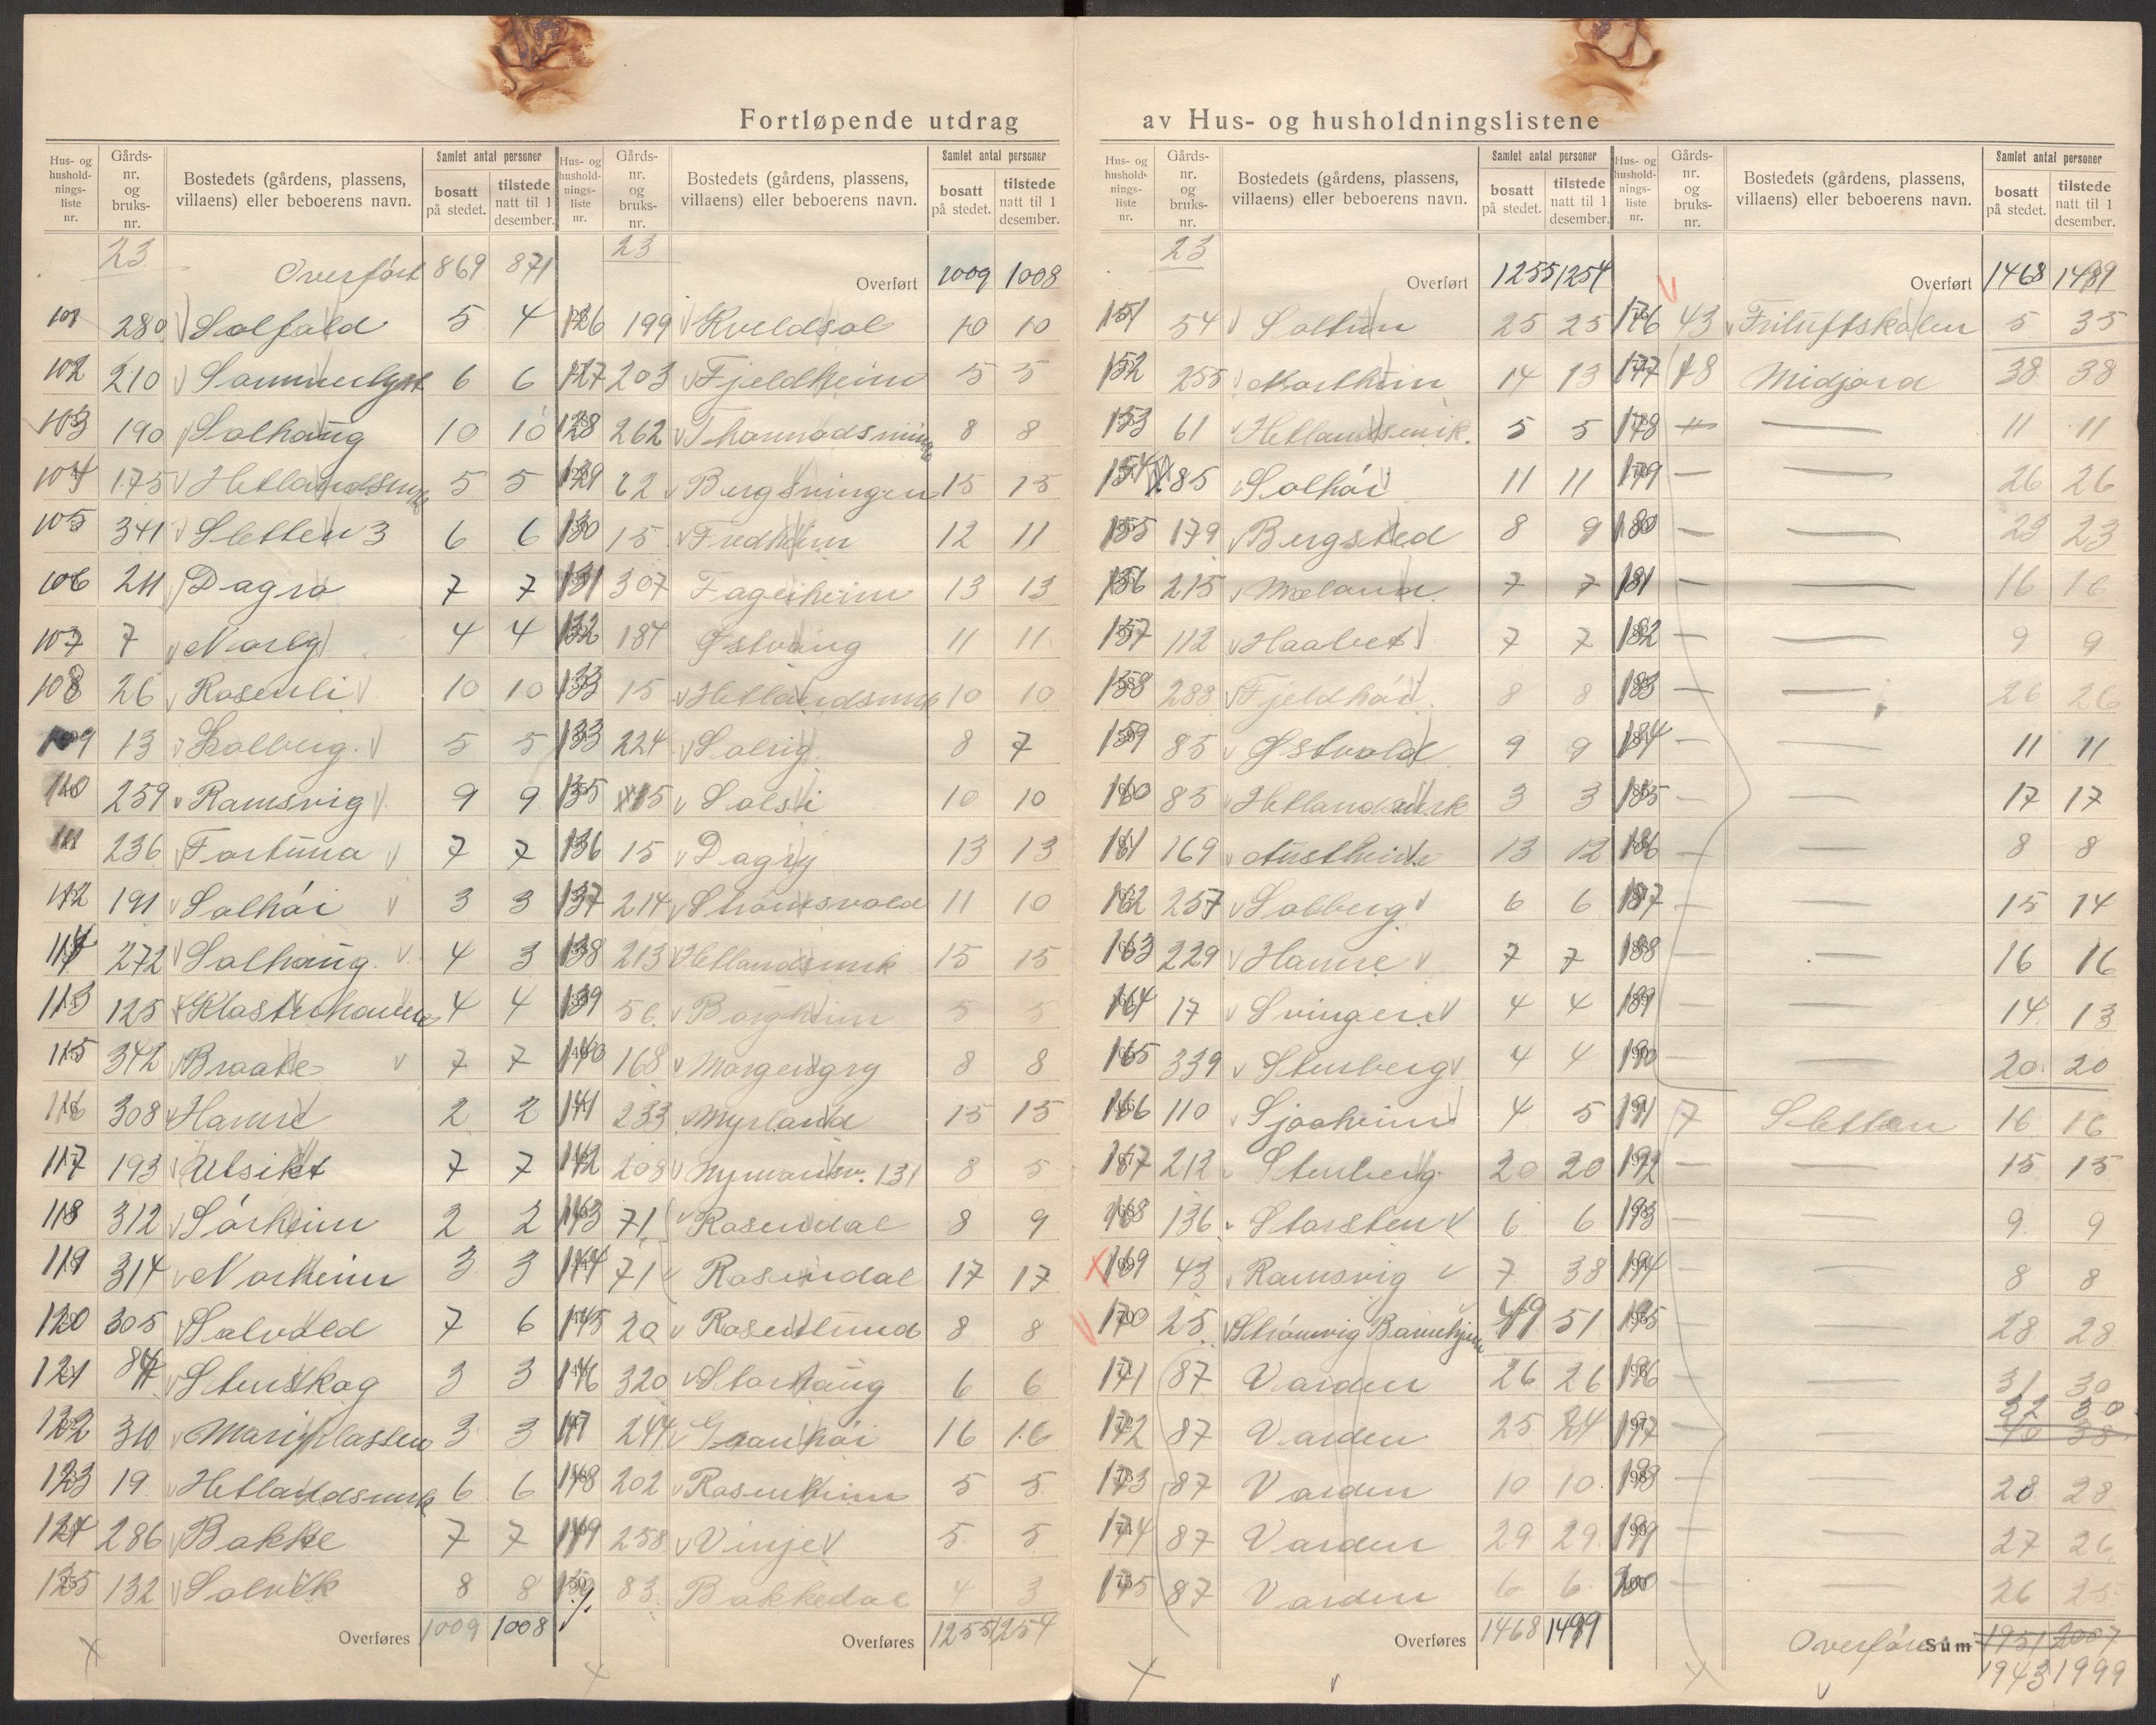 Fortløpende utdrag av Hus- og husholdningslistene
Hus- og hushold-nings-liste nr. Gårds-nr. og bruks-nr. Bostedets (gårdens, plassens, villaens) eller beboerens navn. Samlet antal personer bosatt på stedet. tilstede natt til 1 desember.
23 Overført 869 871
101 280 Solfold 5 4
102 210 Sommerlyst 6 6
103 190 Solhaug 10 10
104 175 Hetlandsmrk 5 5
105 341 Sletten 3 6 6
106 211 Dagro 7 7
107 7 Norly 4 4
108 26 Rosenli 10 10
109 13 Solberg 5 5
110 259 Ramsvig 9 9
111 236 Fortuna 7 7
112 191 Solhöi 3 3
114 272 Solhaug 4 3
113 125 Klosterhaven 4 4
115 342 Braate 7 7
116 308 Hamre 2 2
117 193 Utsikt 7 7
118 312 Sörheim 2 2
119 314 Norheim 3 3
120 305 Solvold 7 6
121 84 Stenskog 3 3
122 310 Mariplassen 3 3
123 19 Hetlandsmrk 6 6
124 286 Bakke 7 7
125 132 Solvik 8 8
Overføres 1009 1008
Hus- og hushold-nings-liste nr. Gårds-nr. og bruks-nr. Bostedets (gårdens, plassens, villaens) eller beboerens navn. Samlet antal personer bosatt på stedet. tilstede natt til 1 desember.
23 Overført 1009 1008
126 199 Kveldsol 10 10
127 203 Fjeldheim 5 5
128 262 8 8
129 22 Bergsvingen 15 15
130 15 Fredheim 12 11
131 307 Fagerheim 13 13
132 184 Østvang 11 11
133 15 Hetlandsmrk 10 10
133 224 Solvig 8 7
135 15 Solsi 10 10
136 15 Dagny 13 13
137 214 Strömsvold 11 10
138 213 Hetlandsmrk 15 15
139 56 Borgheim 5 5
140 168 Morgengry 8 8
141 233 Myrland 15 15
142 208 Nymansv. 131 8 5
143 71 Rosendal 8 9
144 71 Rosendal 17 17
145 20 Rosenlund 8 8
146 320 Storhaug 6 6
147 244 Granhöi 16 16
148 202 Rosenheim 5 5
149 258 Vinje 5 5
150 83 Bakkedal 4 3
Overføres 1255 1254
Hus- og hushold-nings-liste nr. Gårds-nr. og bruks-nr. Bostedets (gårdens, plassens, villaens) eller beboerens navn. Samlet antal personer bosatt på stedet. tilstede natt til 1 desember.
23 Overført 1255 1254
151 54 Soltun 25 25
152 255 Northeim 14 13
153 61 Hetlandsmrk. 5 5
154 185 Solhöi 11 11
155 179 Bergsted 8 9
156 215 Mæland 7 7
157 112 Haabet 7 7
158 283 Fjeldhöi 8 8
159 85 Østvold 9 9
160 85 Hetlandsmrk 3 3
161 169 Austheim 13 12
162 257 Solberg 6 6
163 229 Hamre 7 7
164 17 Svingen 4 4
165 339 Stenberg 4 4
166 110 Sjøheim 4 5
167 212 Stenberg 20 20
168 136 Storsten 6 6
169 43 Ramsvig 7 38
170 25 Strömvig Barnehjem 49 51
171 87 Varden 26 26
172 87 Varden 25 24
173 87 Varden 10 10
174 87 Varden 29 29
175 87 Varden 6 6
Overføres 1468 1499
Hus- og hushold-nings-liste nr. Gårds-nr. og bruks-nr. Bostedets (gårdens, plassens, villaens) eller beboerens navn. Samlet antal personer bosatt på stedet. tilstede natt til 1 desember.
Overført 1468 1489
176 43 Friluftskolen 5 35
177 18 Midjord 38 38
178 — — 11 11
179 — — 26 26
180 — — 23 23
181 — — 16 16
182 — — 9 9
183 — — 26 26
184 — — 11 11
185 — — 17 17
186 — — 8 8
187 — — 15 14
188 — — 16 16
189 — — 14 13
190 — — 20 20
191 7 Sletten 16 16
192 — — 15 15
193 — — 9 9
194 — — 8 8
195 — — 28 28
196 — — 31 30
32 30
197 — — 40 38
198 — — 28 28
199 — — 27 26
200 — — 26 25
Overføres Sum 1951 2007
1943 1999